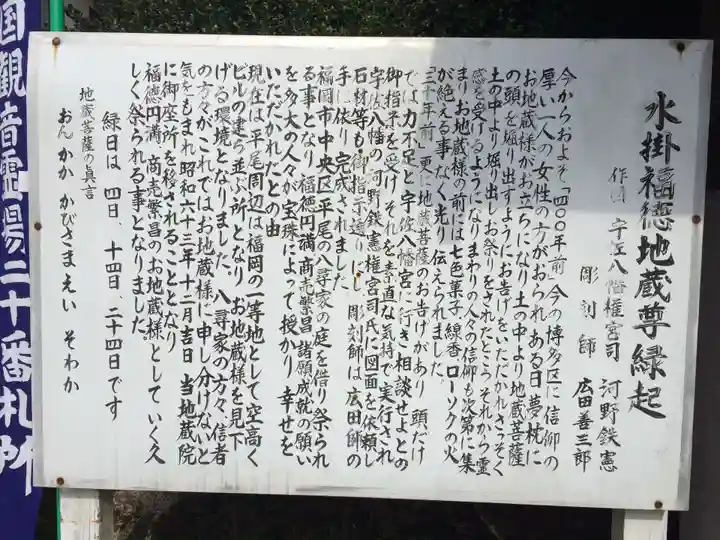 水掛福徳地蔵尊縁起
作図 宇佐八幡権宮司 河野鉄憲
彫刻師 広田善三郎
今からおよそ「四〇〇年前」今の博多区に信仰の
厚い一人の女性の方がおられ、ある日夢枕に
お地蔵様がお立ちになり土の中より地蔵菩薩
の頭を堀り出すようにお告げをいただかれさっそく
土の中より堀り出しお祭りをされたところそれから霊
感を受けるようになりまわりの人々の信仰も次第に集
まりお地蔵様の前には七色菓子、線香、ローソクの火
が絶える事なく光り伝えられました。
「三十年前」更に地蔵菩薩のお告げがあり、頭だけ
では力不足と宇佐八幡宮に行き相談せよとの
御指示を受けそれを素直な気持で実行され
宇佐八幡の河野鉄憲権宮司氏に図面を依頼し
石材等も御指示通りに、彫刻師は広田師の
手に依り完成されました
福岡市中央区平尾の八尋家の庭を借り祭られ
る事となり福徳円満、商売繁昌、諸願成就の願い
を多大の人々が宝珠によって授かり幸せを
いただかれたとの由
現在は平尾周辺は福岡の一等地として空高く
ビルの建ち並ぶ所となり、お地蔵様を見下
げる環境となりました。八尋家の方々、信者
の方々がこれではお地蔵様に申し分けないと
気をもまれ昭和六十三年十二月吉日当地蔵院
に御座所を移されることとなり
福徳円満、商売繁昌のお地蔵様としていく久
しく祭られる事となりました。
縁日は 四日、十四日、二十四日です
地蔵菩薩の真言
おん かか かびさまえい そわか
国観音霊場三十番札所